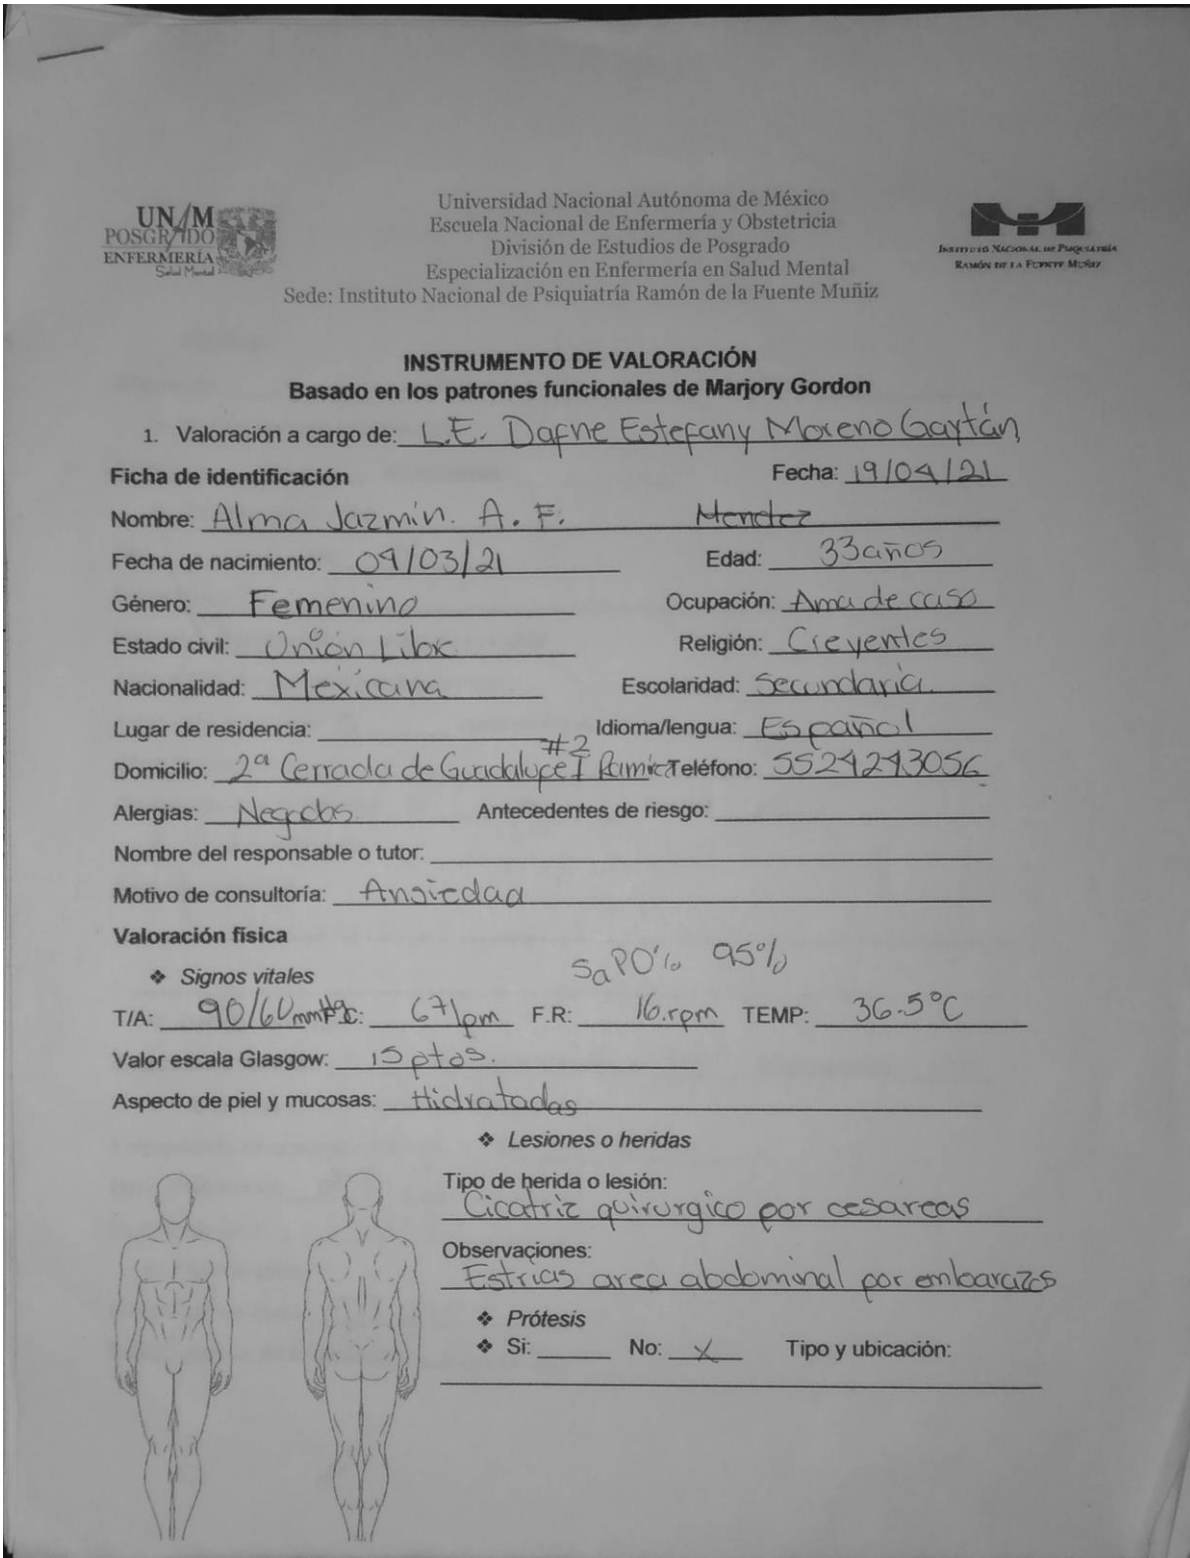 UNAM
POSGRADO
ENFERMERÍA
Salud Mental
Universidad Nacional Autónoma de México
Escuela Nacional de Enfermería y Obstetricia
División de Estudios de Posgrado
Especialización en Enfermería en Salud Mental
Sede: Instituto Nacional de Psiquiatría Ramón de la Fuente Muñiz
INSTITUTO NACIONAL DE PSIQUIATRÍA
RAMÓN DE LA FUENTE MUÑIZ
INSTRUMENTO DE VALORACIÓN
Basado en los patrones funcionales de Marjory Gordon
1. Valoración a cargo de: L.E. Dafne Estefany Moreno Gaytán
Ficha de identificación Fecha: 19/04/21
Nombre: Alma Jazmin. A. F. Mendez
Fecha de nacimiento: 09/03/21 Edad: 33años
Género: Femenino Ocupación: Ama de casa
Estado civil: Unión Libre Religión: Creyentes
Nacionalidad: Mexicana Escolaridad: Secundaria
Lugar de residencia: Idioma/lengua: Español
Domicilio: 2ª Cerrada de Guadalupe I #2 Teléfono: 5524243056
Alergias: Negadas Antecedentes de riesgo:
Nombre del responsable o tutor:
Motivo de consultoría: Ansiedad
Valoración física
❖ Signos vitales SaPO% 95%
T/A: 90/60mmHg C: 67lpm F.R: 16.rpm TEMP: 36.5°C
Valor escala Glasgow: 15 ptos.
Aspecto de piel y mucosas: Hidratadas
❖ Lesiones o heridas
Tipo de herida o lesión:
Cicatriz quirurgico por cesareas
Observaciones:
Estrias area abdominal por embarazos
❖ Prótesis
❖ Si: No: X Tipo y ubicación: